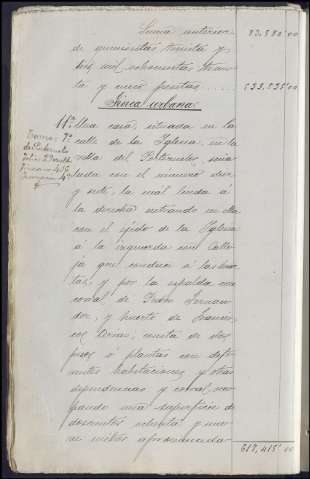 Suma anterior 83,580'00
de quinientas treinta y
tres mil ochocientas trein-
ta y cinco pesetas 533,835'00
Finca urbana
11ª Una casa, situada en la
calle de la Iglesia, en la
villa del Pedernoso, seña-
lada con el número diez
y siete, la cual linda á
la derecha entrando en ella
con el ejido de la Iglesia
á la izquierda con calle-
ja que conduce á las huer-
tas, y por la espalda con
corral de Pedro Fernan-
dez, y huerto de Francis-
co Arias, consta de dos
pisos ó plantas con dife-
rentes habitaciones y otras
dependencias y corral, ocu-
pando una superficie de
doscientos setenta y nue-
ve metros aproximada-
617,415'00
Tomo 7º
folio
finca